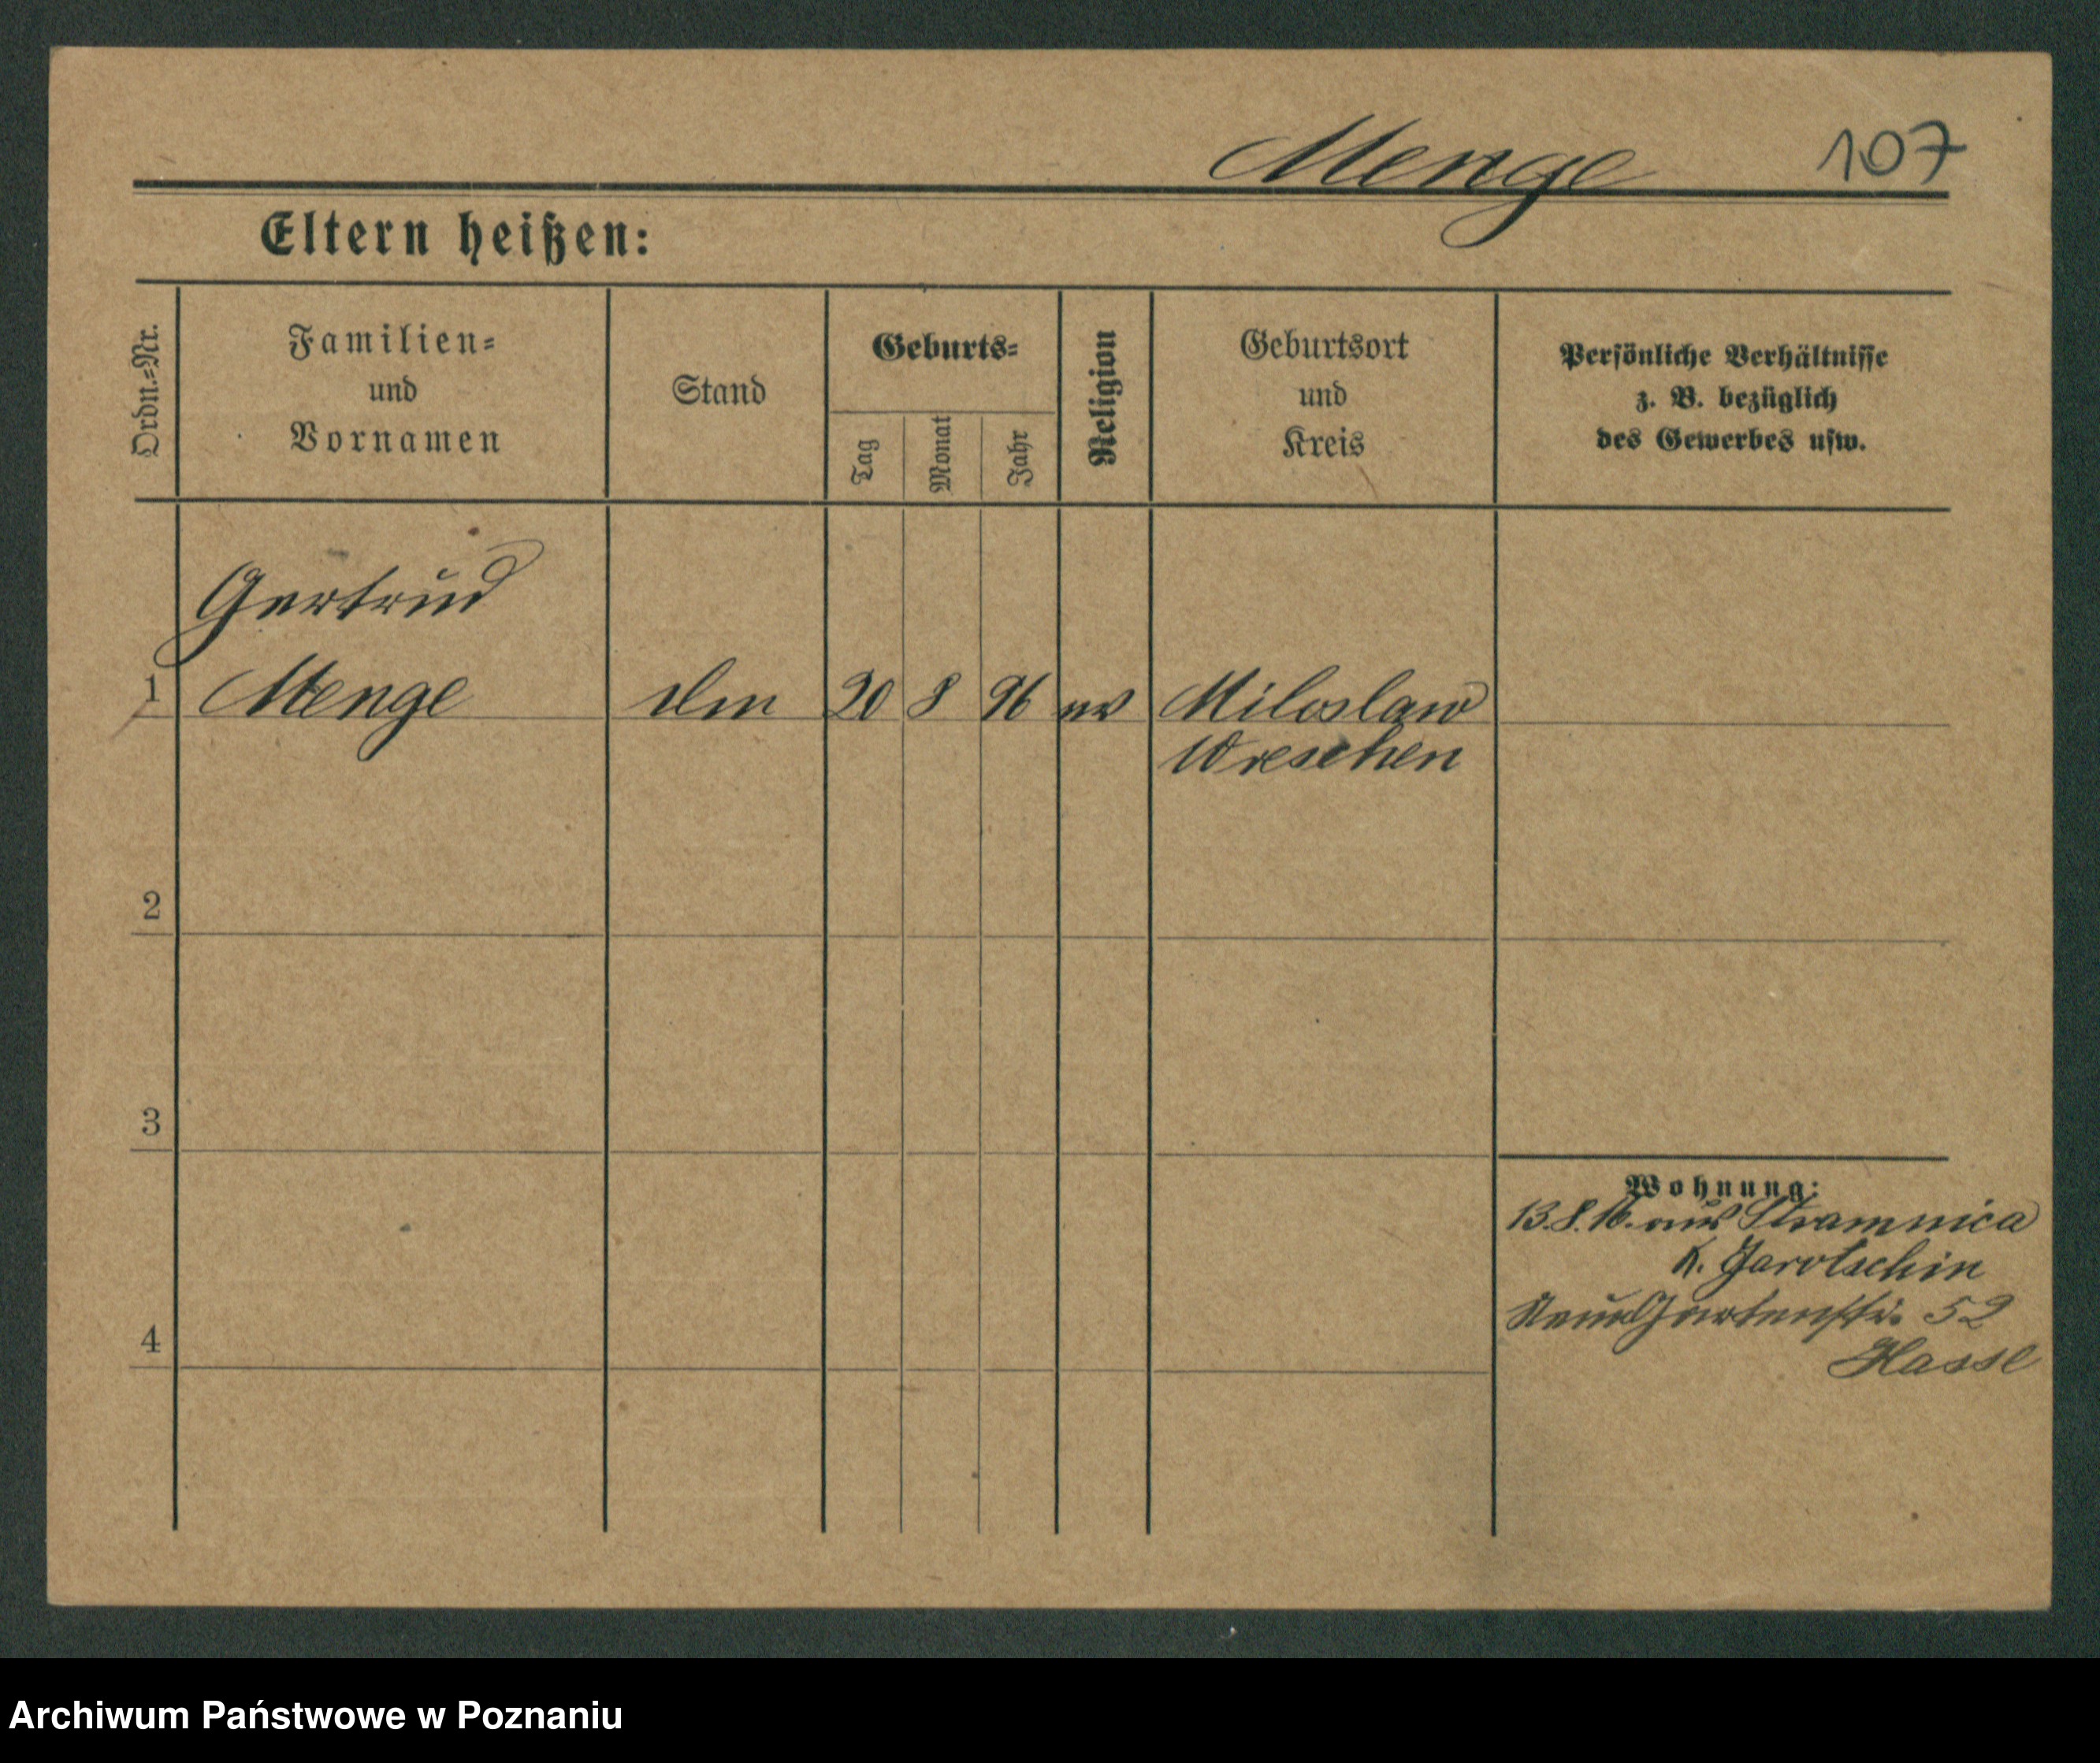 Menge 107
Eltern heißen:
Ordn.-Nr.
Familien-
und
Vornamen
Stand
Geburts-
Tag
Monat
Jahr
Religion
Geburtsort
und
Kreis
Persönliche Verhältnisse
z. B. bezüglich
des Gewerbes usw.
Gertrud
1 Menge 20 8 96 ev Miloslaw
Wreschen
2
3
Wohnung:
13.8.16. aus Stramnica
K. Jarotschin
Neue Gartenstr. 52
4
Hasse
Archiwum Państwowe w Poznaniu